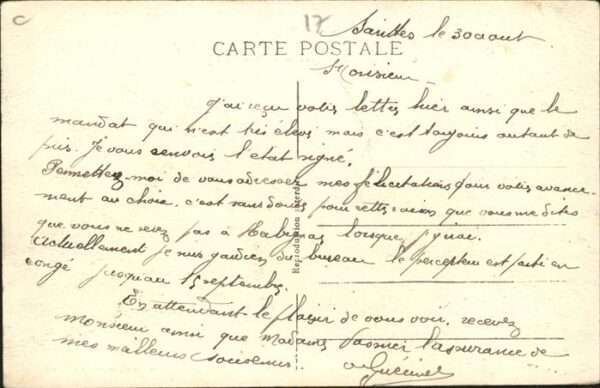 C
17
Saintes le 30 aout
CARTE POSTALE
Monsieur
J'ai reçu votre lettre hier ainsi que le
mandat qui n'est très élevé mais c'est toujours autant de
pris. Je vous renvois l'etat signé.
Permettez moi de vous adresser mes félicitations pour votre avance-
ment au choix. c'est sans doute pour cette raison que vous me dites
que vous ne serez pas à lorsque j'irai.
Actuellement je suis du bureau le percepteur est parti en
congé jusqu'au 15 septembre.
En attendant le plaisir de vous voir, recevez
monsieur ainsi que madame l'assurance de
mes meilleurs souvenirs.
Reproduction interdite